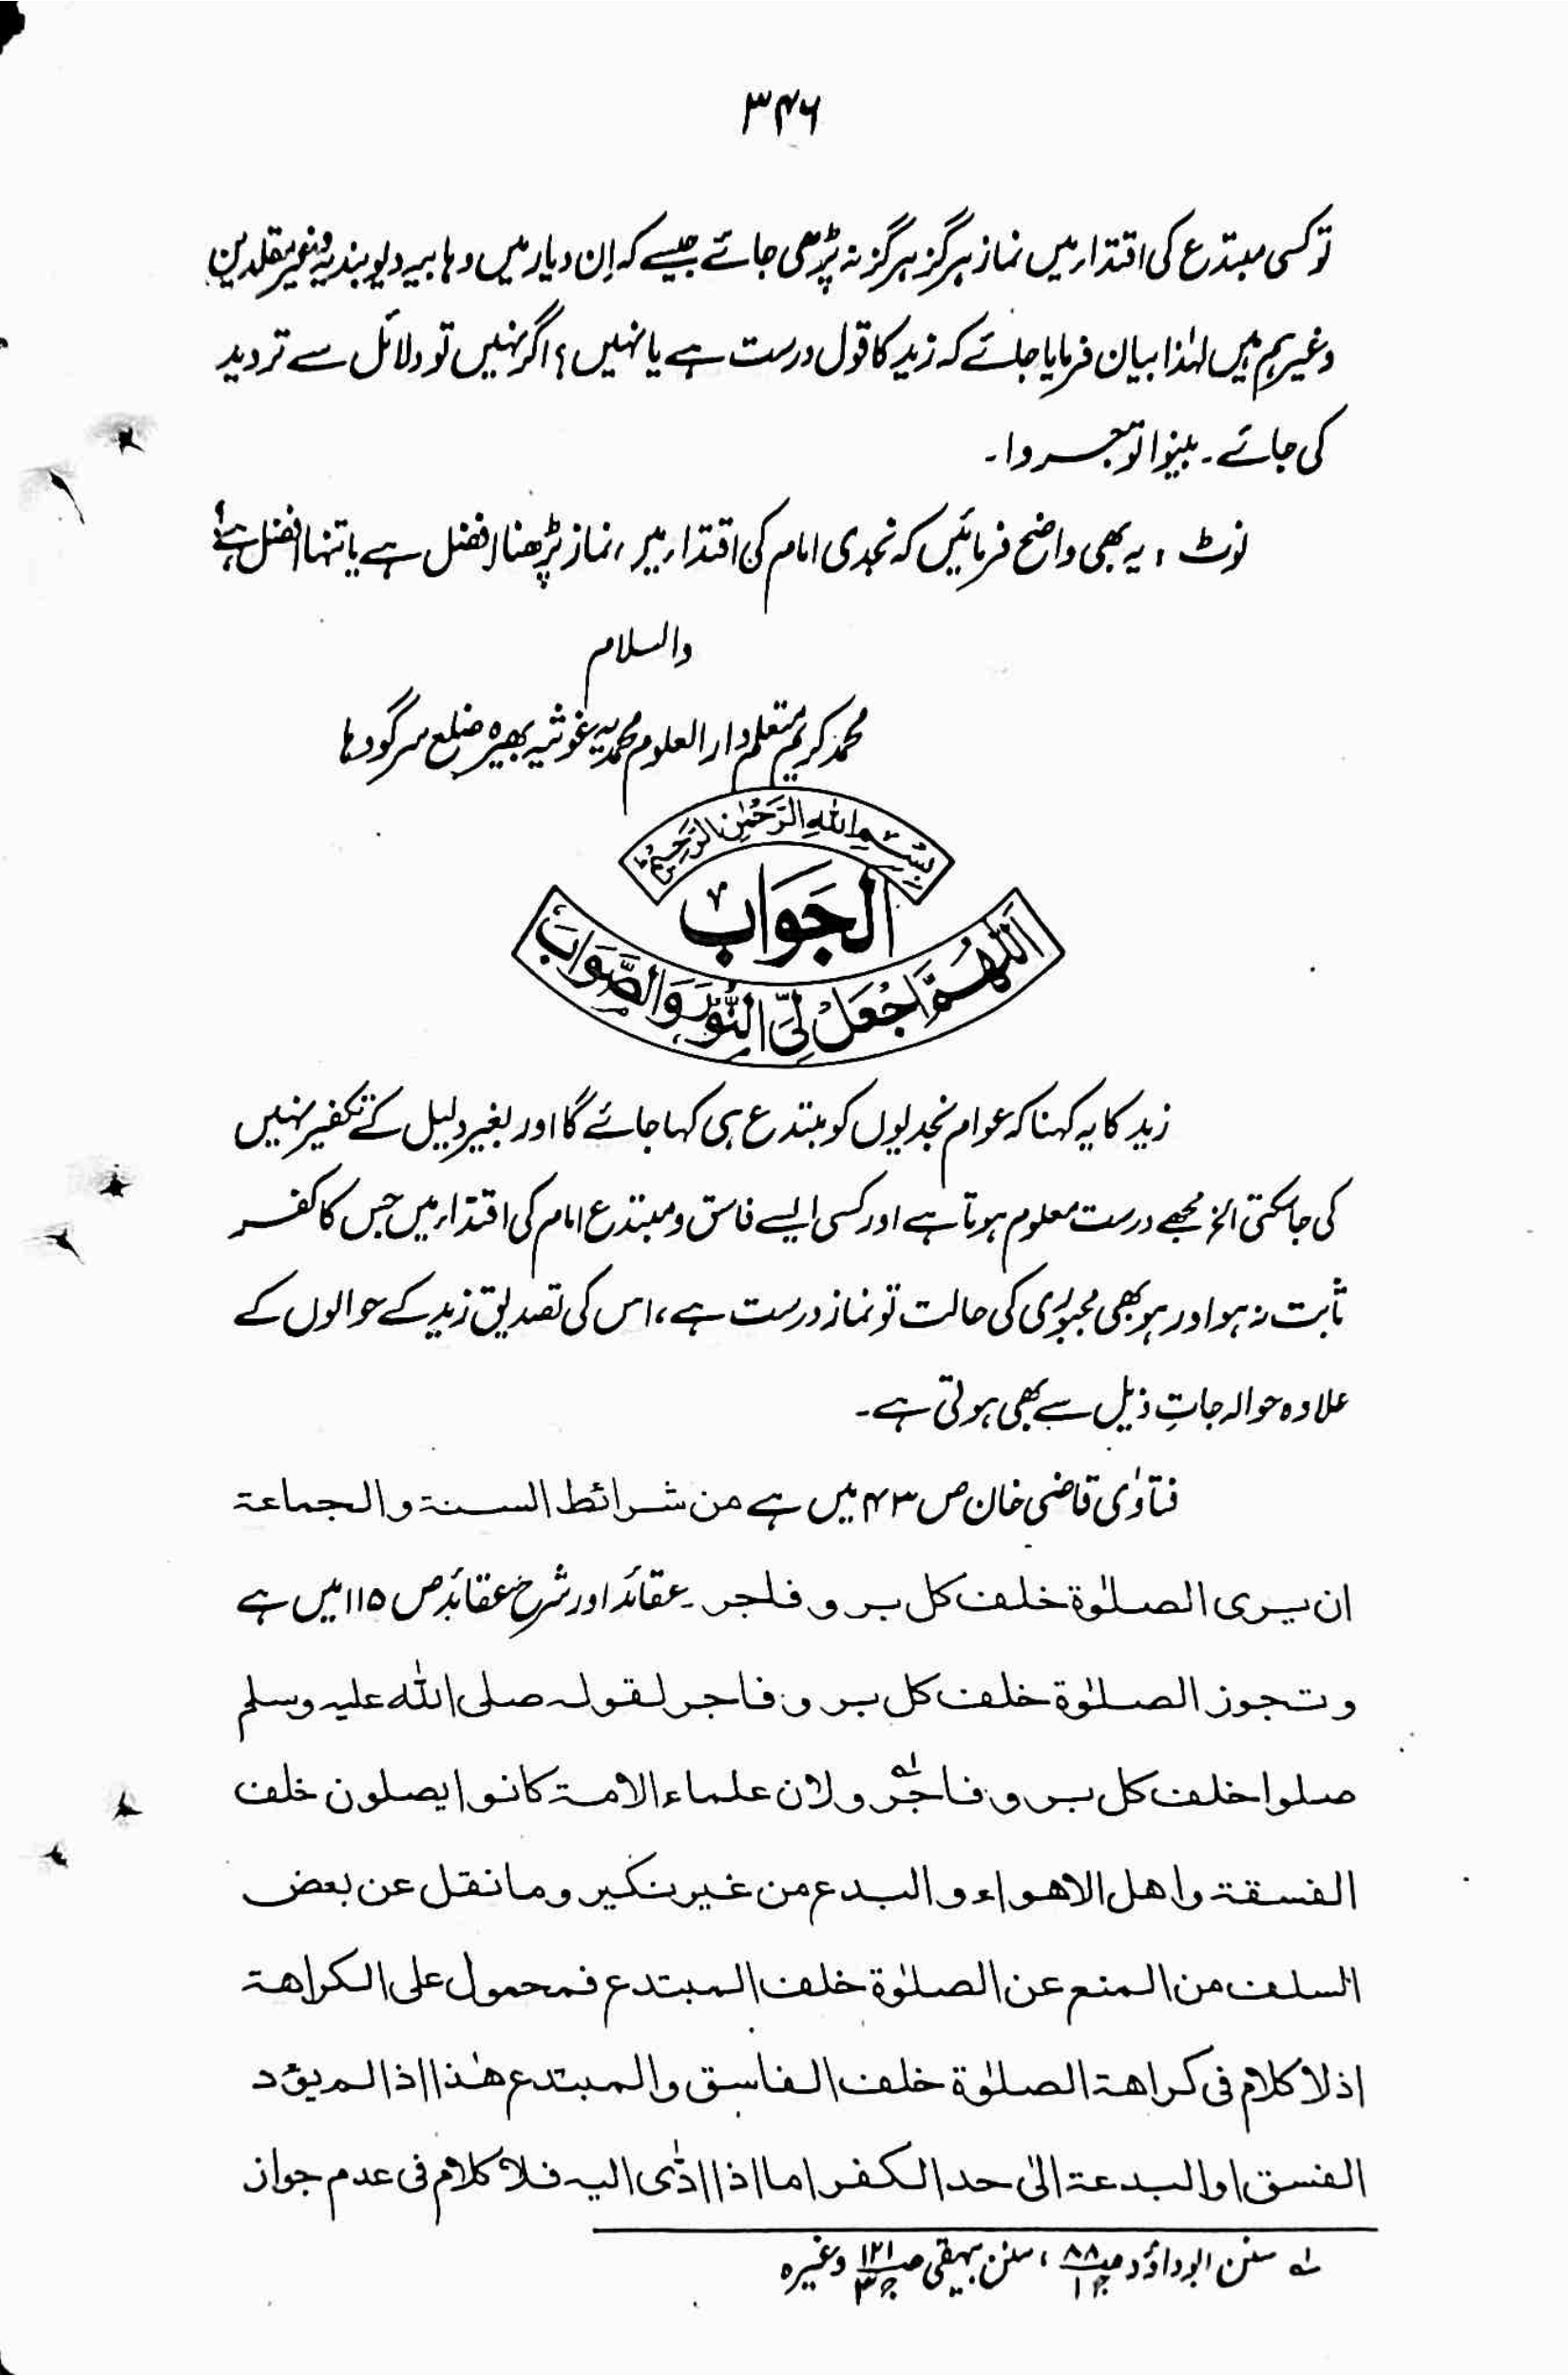 ۳۴۶
تو کسی مبتدع کی اقتدار میں نماز ہرگز ہرگز نہ پڑھی جائے جیسے کہ اِن دیار میں وہابیہ دیوبندیہ وغیر مقلدین
وغیرہم ہیں لہٰذا بیان فرمایا جائے کہ زید کا قول درست ہے یا نہیں؟ اگر نہیں تو دلائل سے تردید
کی جائے۔ بینوا توجروا۔
نوٹ ، یہ بھی واضح فرمائیں کہ نجدی امام کی اقتدار میں نماز پڑھنا افضل ہے یا تنہا افضل ہے؟
والسلام
محمد کریم متعلم دار العلوم محمدیہ غوثیہ بھیرہ ضلع سرگودہا
بِسْمِ اللهِ الرَّحْمٰنِ الرَّحِيْمِ
اَلْجَوَابُ
اَللّٰهُمَّ اجْعَلْ لِّيَ النُّوْرَ وَالصَّوَابَ
زید کا یہ کہنا کہ عوام نجدیوں کو مبتدع ہی کہا جائے گا اور بغیر دلیل کے تکفیر نہیں
کی جا سکتی الخ مجھے درست معلوم ہوتا ہے اور کسی ایسے فاسق و مبتدع امام کی اقتدار میں جس کا کفر
ثابت نہ ہو اور ہو بھی مجبوری کی حالت تو نماز درست ہے، اس کی تصدیق زید کے حوالوں کے
علاوہ حوالہ جاتِ ذیل سے بھی ہوتی ہے۔
فتاوٰی قاضی خان ص ۴۳ میں ہے من شرائط السنة والجماعة
ان يرى الصلٰوة خلف كل بر و فاجر۔ عقائد اور شرح عقائد ص ۱۱۵ میں ہے
و تجوز الصلٰوة خلف كل بر و فاجر لقوله صلى الله عليه وسلم
صلوا خلف كل بر و فاجر ؎۱ ولان علماء الامة كانوا يصلون خلف
الفسقة واهل الاهواء والبدع من غير نكير وما نقل عن بعض
السلف من المنع عن الصلٰوة خلف المبتدع فمحمول على الكراهة
اذ لا كلام فى كراهة الصلٰوة خلف الفاسق والمبتدع هٰذا اذا لم يؤد
الفسق او البدعة الىٰ حد الكفر اما اذا ادّٰى اليه فلا كلام فى عدم جواز
؎۱ سنن ابوداؤد ص ۸۸ ج ۱ ، سنن بیہقی ص ۱۲۱ ج ۳ وغیرہ